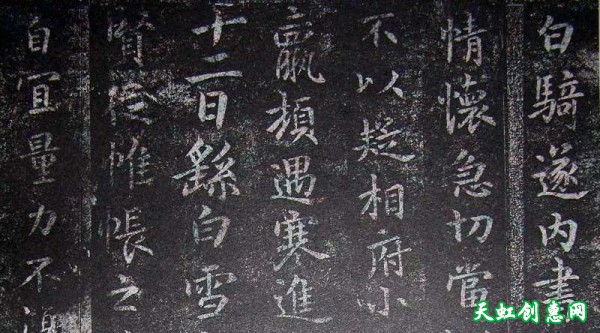 白騎遂内書
情懷急切當
不以疑相府小
羸頓遇寒進
十二日繇白雪
幃帳之
自宜量力不
天虹创惠网